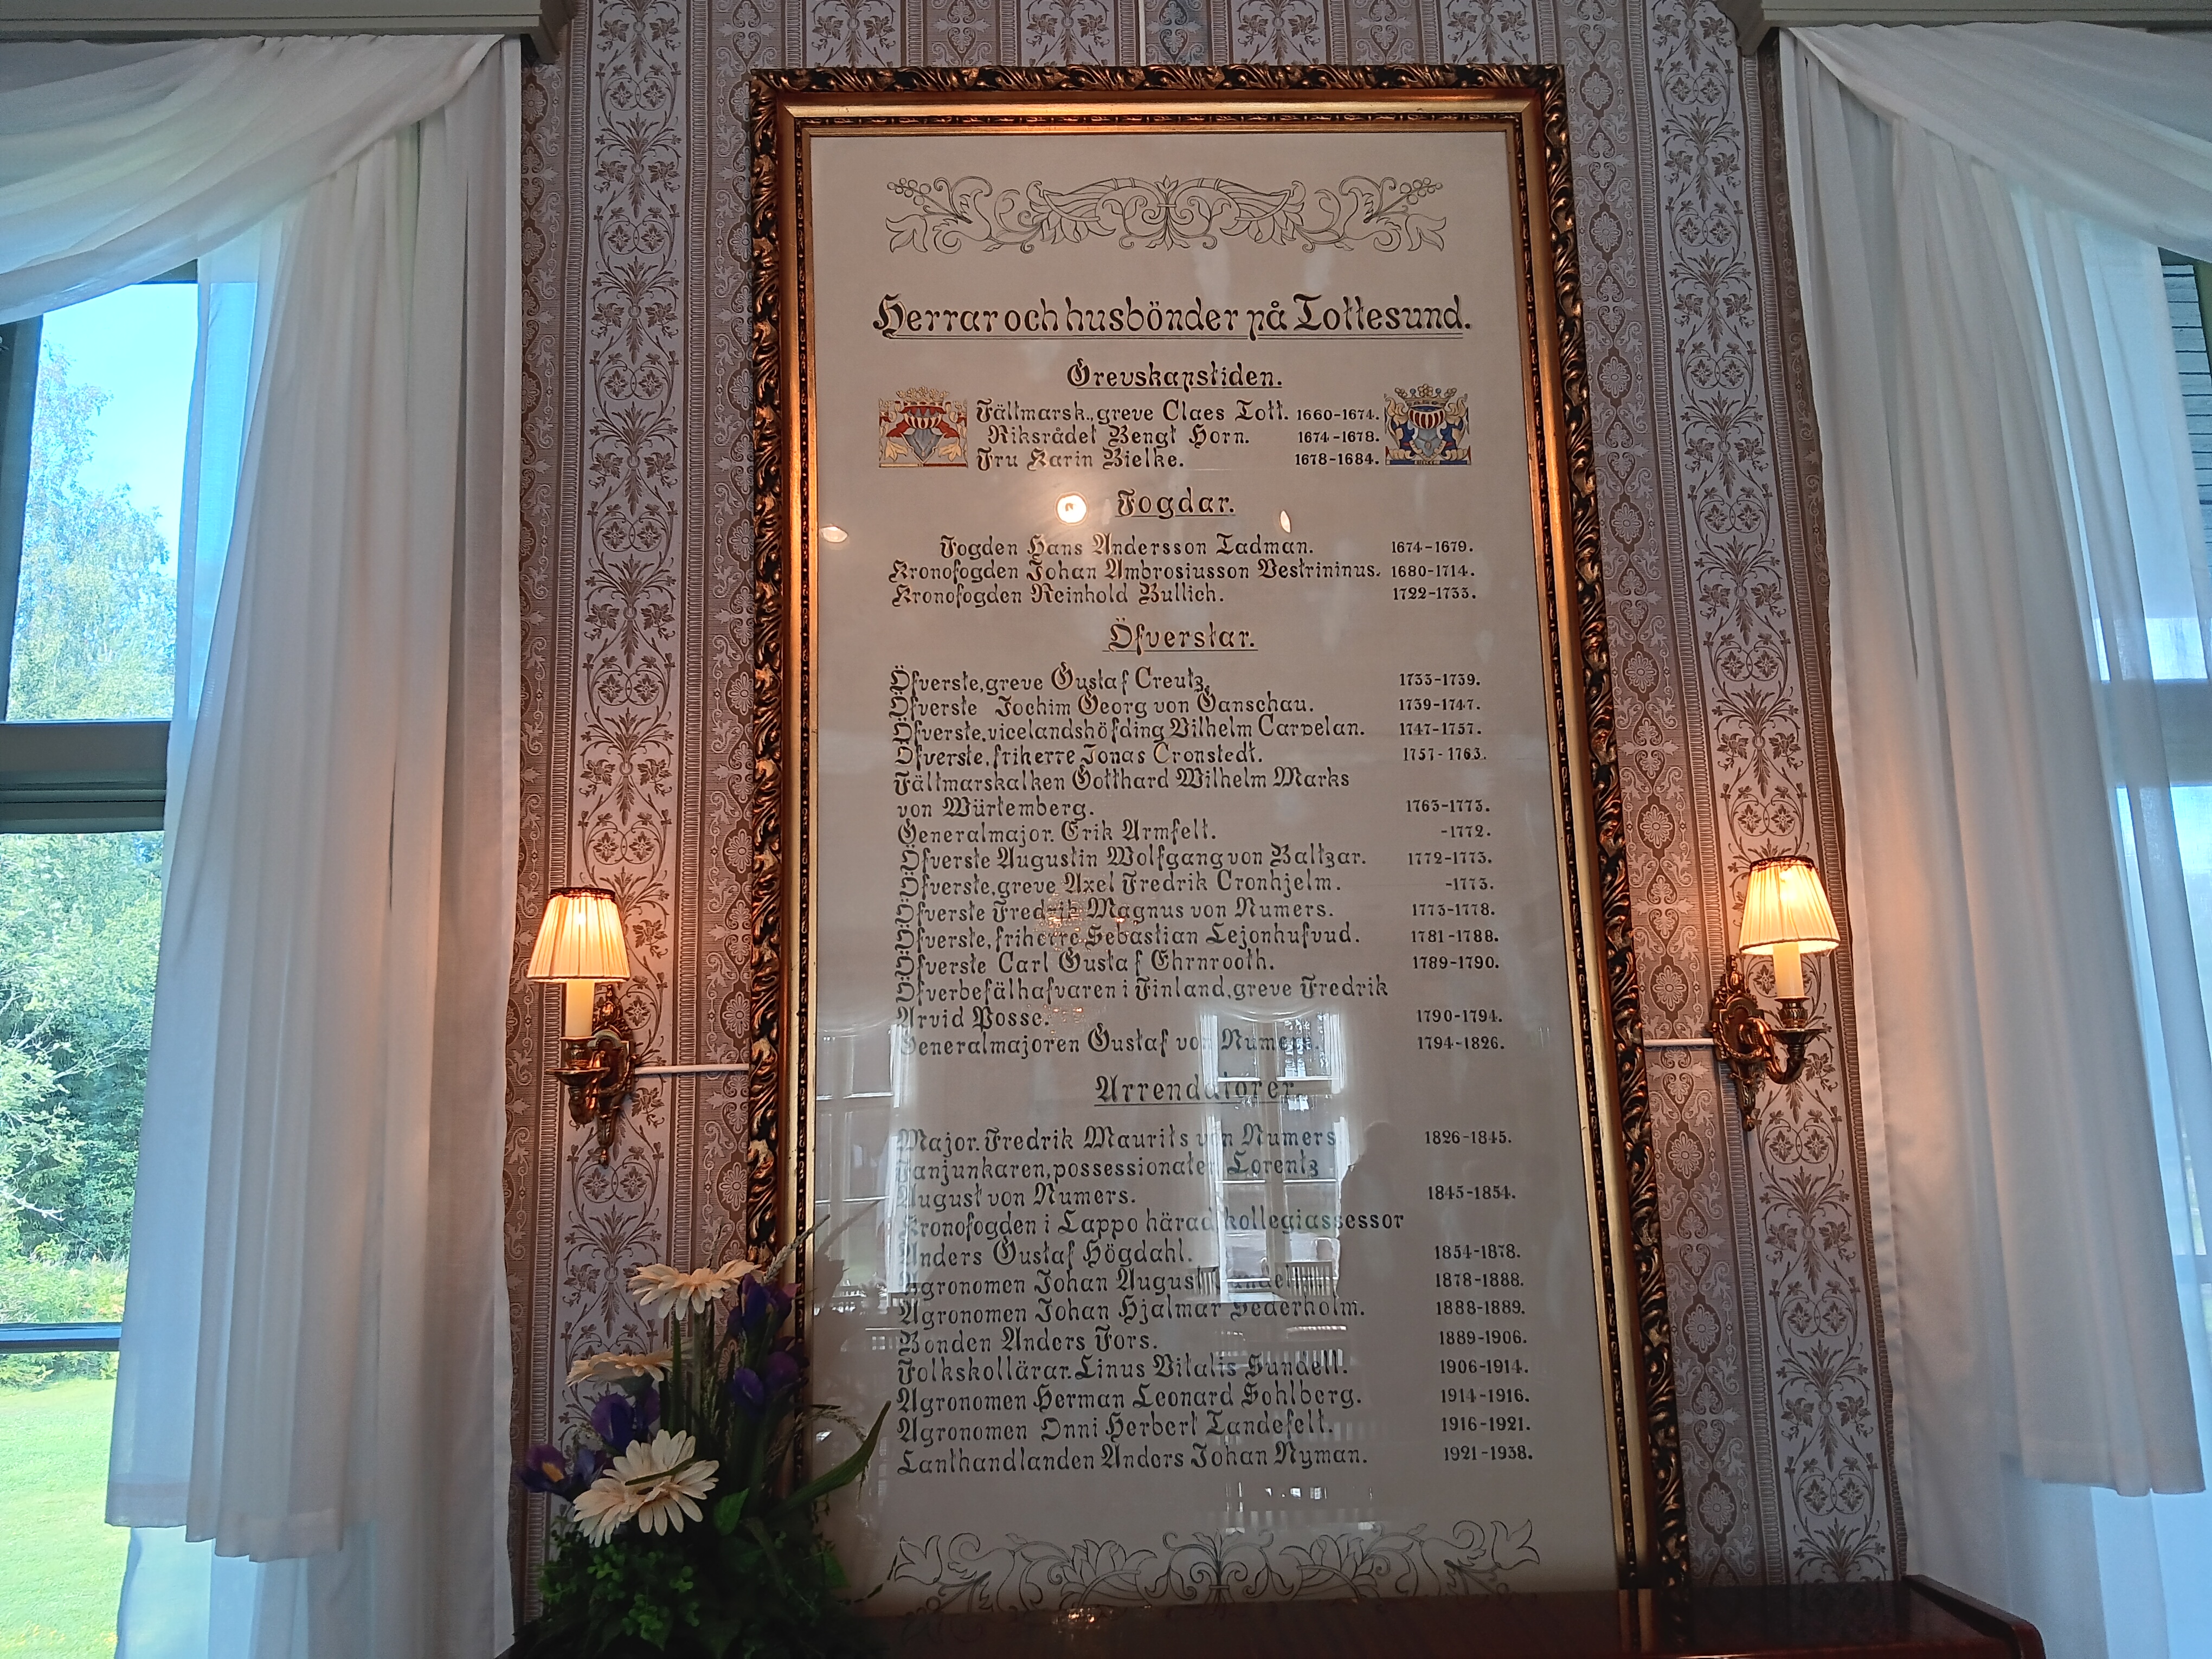 Herrar och husbönder på Tottesund.
Grevskapstiden.
Fältmarsk., greve Claes Tott. 1660-1674.
Riksrådet Bengt Horn. 1674-1678.
Fru Karin Bielke. 1678-1684.
Fogdar.
Fogden Hans Andersson Tadman. 1674-1679.
Kronofogden Johan Ambrosiusson Vestrininus. 1680-1714.
Kronofogden Reinhold Bullich. 1722-1733.
Öfverstar.
Öfverste, greve Gustaf Creutz. 1733-1739.
Öfverste Jochim Georg von Ganschau. 1739-1747.
Öfverste, vicelandshöfding Vilhelm Carpelan. 1747-1757.
Öfverste, friherre Jonas Cronstedt. 1757-1763.
Fältmarskalken Gotthard Wilhelm Marks
von Würtemberg. 1763-1773.
Generalmajor. Erik Armfelt. -1772.
Öfverste Augustin Wolfgang von Baltzar. 1772-1773.
Öfverste, greve Axel Fredrik Cronhjelm. -1773.
Öfverste Fredrik Magnus von Numers. 1773-1778.
Öfverste, friherre Sebastian Lejonhufvud. 1781-1788.
Öfverste Carl Gustaf Ehrnrooth. 1789-1790.
Öfverbefälhafvaren i Finland, greve Fredrik
Arvid Posse. 1790-1794.
Generalmajoren Gustaf von Numers. 1794-1826.
Arrendatorer
Major. Fredrik Maurits von Numers 1826-1845.
Fanjunkaren, possessionaten Lorentz
August von Numers. 1845-1854.
Kronofogden i Lappo härad kollegiassessor
Anders Gustaf Högdahl. 1854-1878.
Agronomen Johan August 1878-1888.
Agronomen Johan Hjalmar Sederholm. 1888-1889.
Bonden Anders Fors. 1889-1906.
Folkskollärar. Linus Vitalis Sundell. 1906-1914.
Agronomen Herman Leonard Sohlberg. 1914-1916.
Agronomen Onni Herbert Tandefelt. 1916-1921.
Lanthandlanden Anders Johan Nyman. 1921-1938.